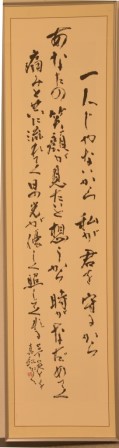 一人じゃないから 私が君を守るから
あなたの笑顔が見たいと想うから 時がなだめてく
痛みと共に流れてく 日の光が優しく照してくれる